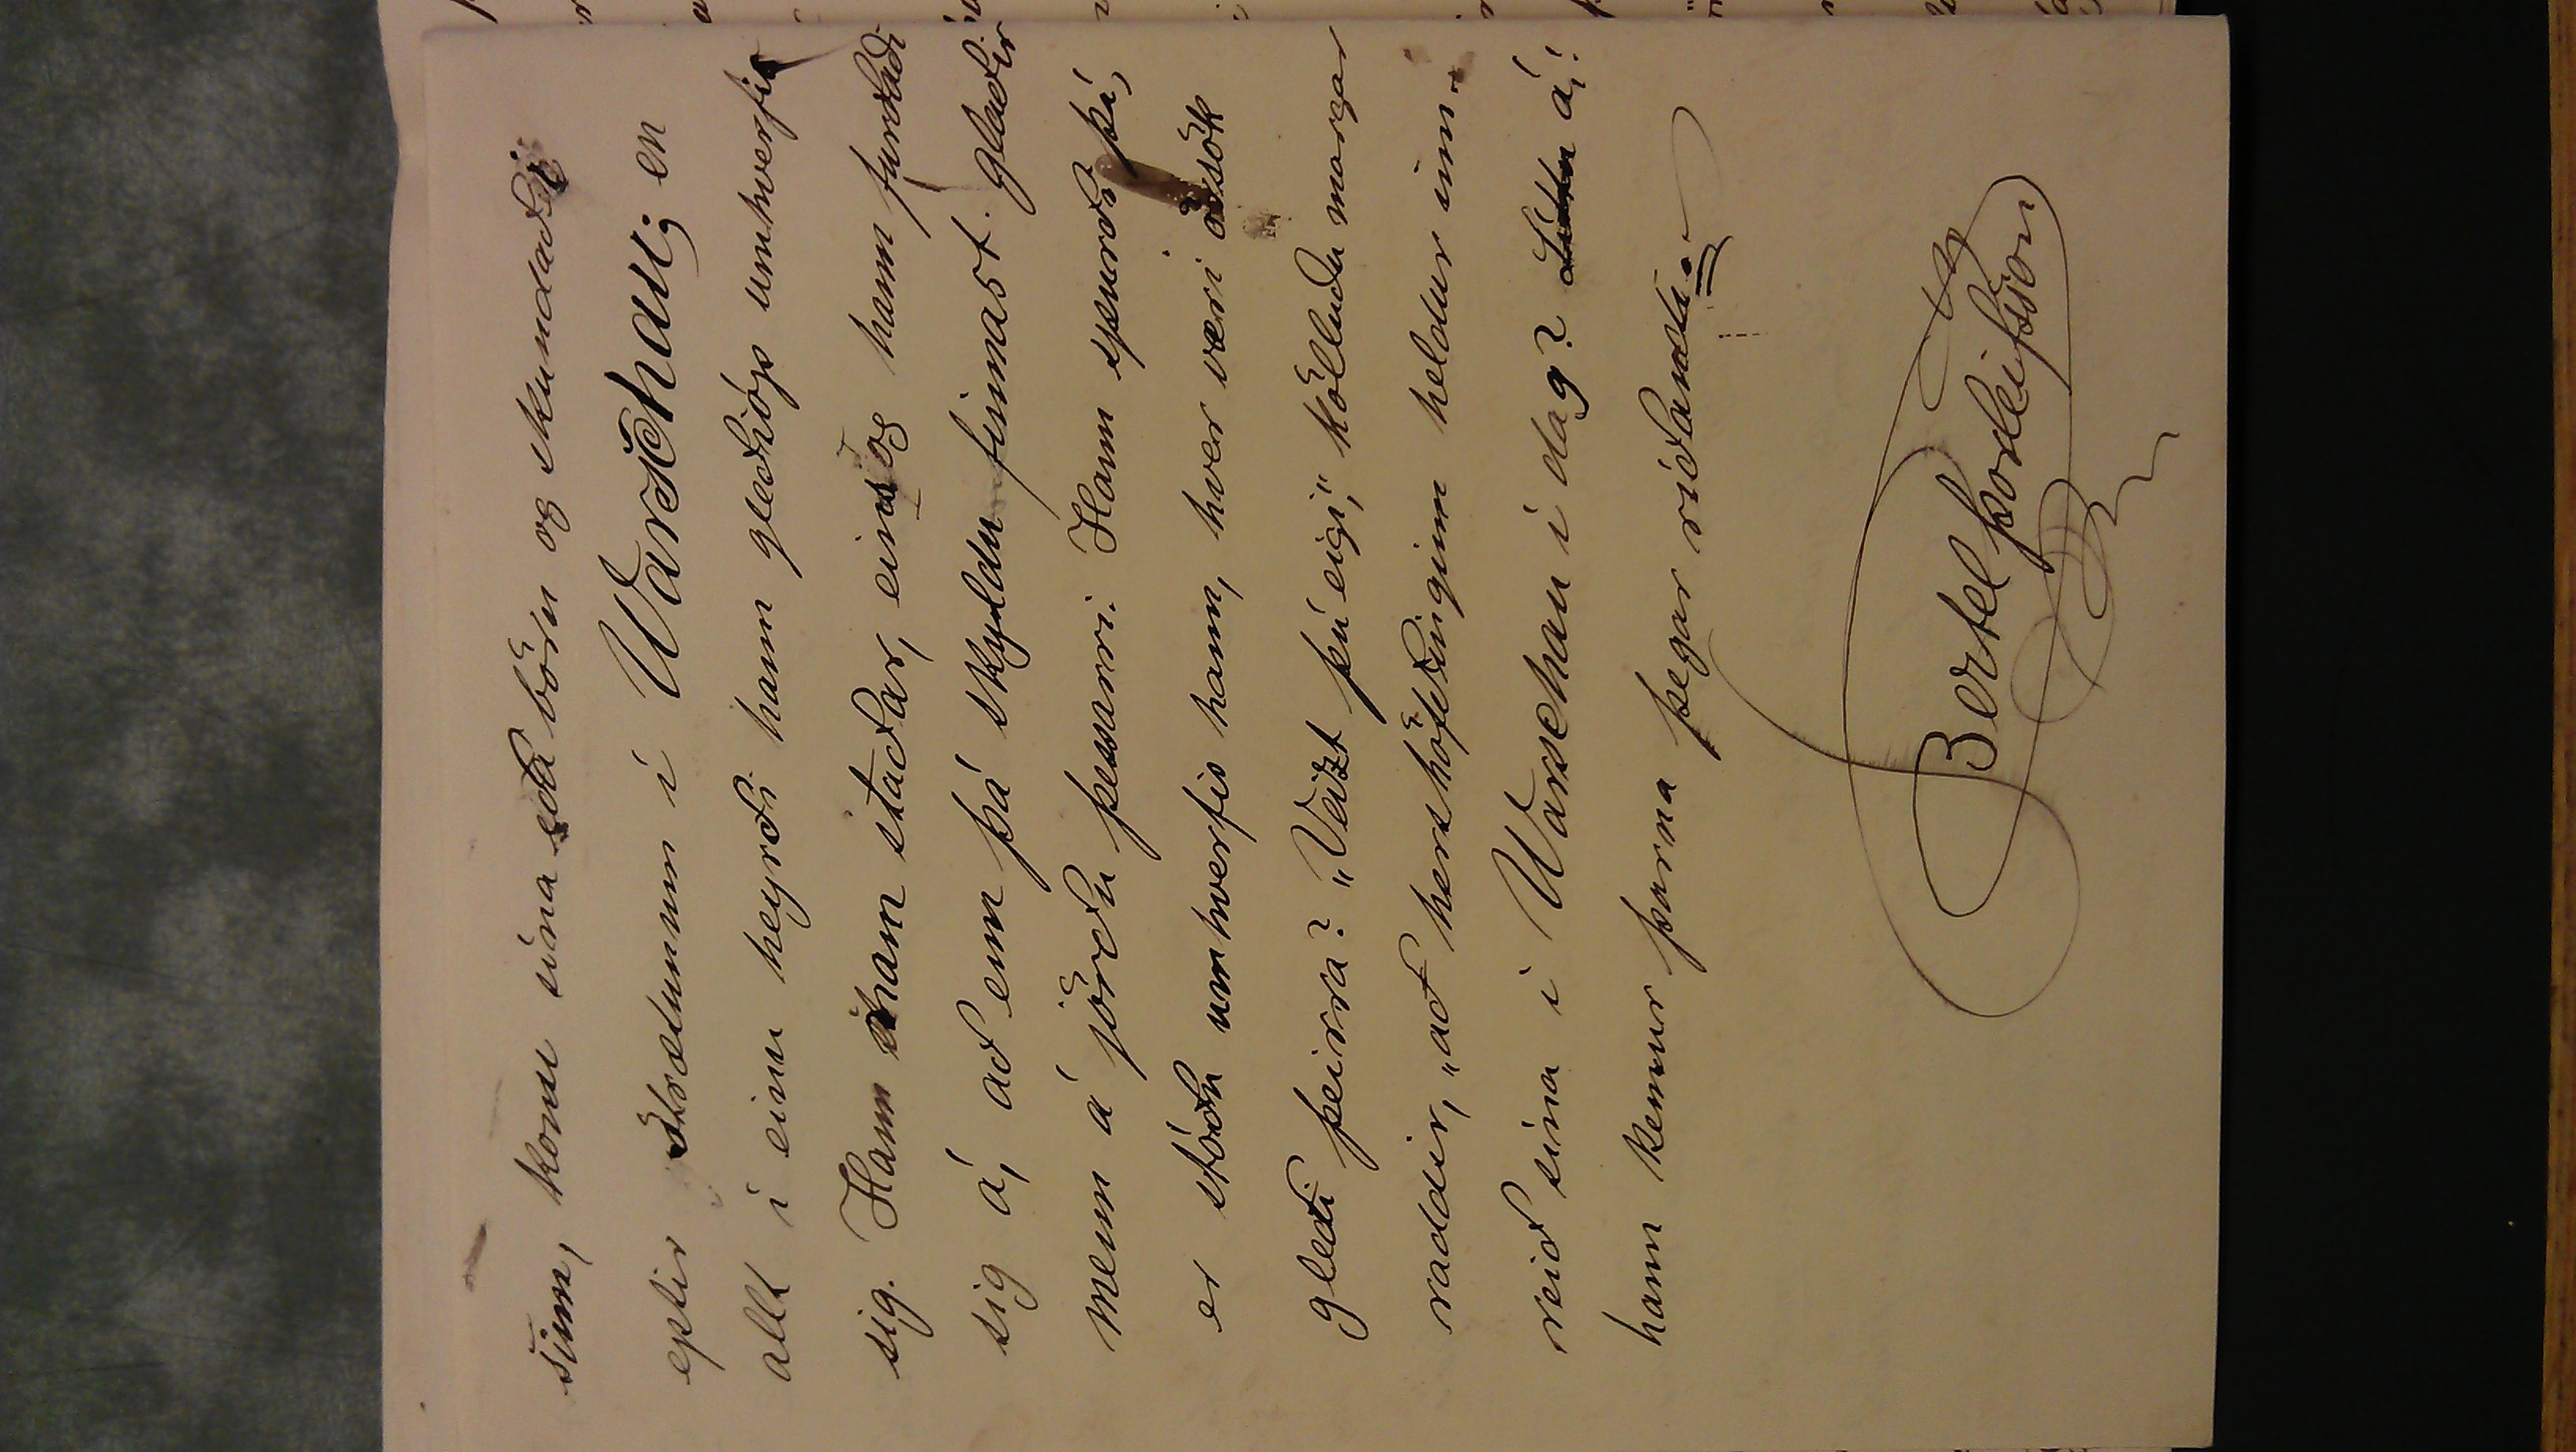 sinni, konu sína eða börn og skundaði
eptir strætunum í Warschau; en
allt í einu heyrði hann gleðióp umhverfis
sig. Hann nam staðar, eins og hann furðaði
sig á, að enn þá skyldu finnast glaðir
menn á jörðu þessarri. Hann spurði þá,
er stóðu umhverfis hann, hver væri orsök
gleði þeirra? „Veizt þú eigi,“ kölluðu margar
raddir, „að hershöfðinginn heldur inn-
reið sína í Warschau í dag? Líttu á!
hann kemur þarna þegar ríðandi.“
Bertel Þorleifsson